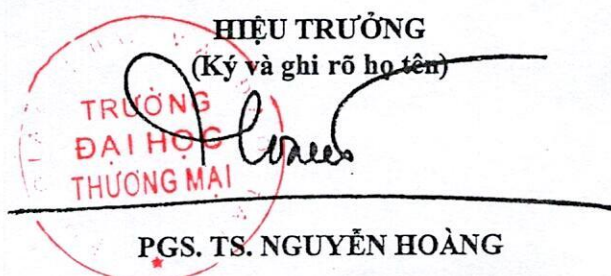 HIỆU TRƯỞNG
(Ký và ghi rõ họ tên)
TRƯỜNG
ĐẠI HỌC
THƯƠNG MẠI
PGS. TS. NGUYỄN HOÀNG